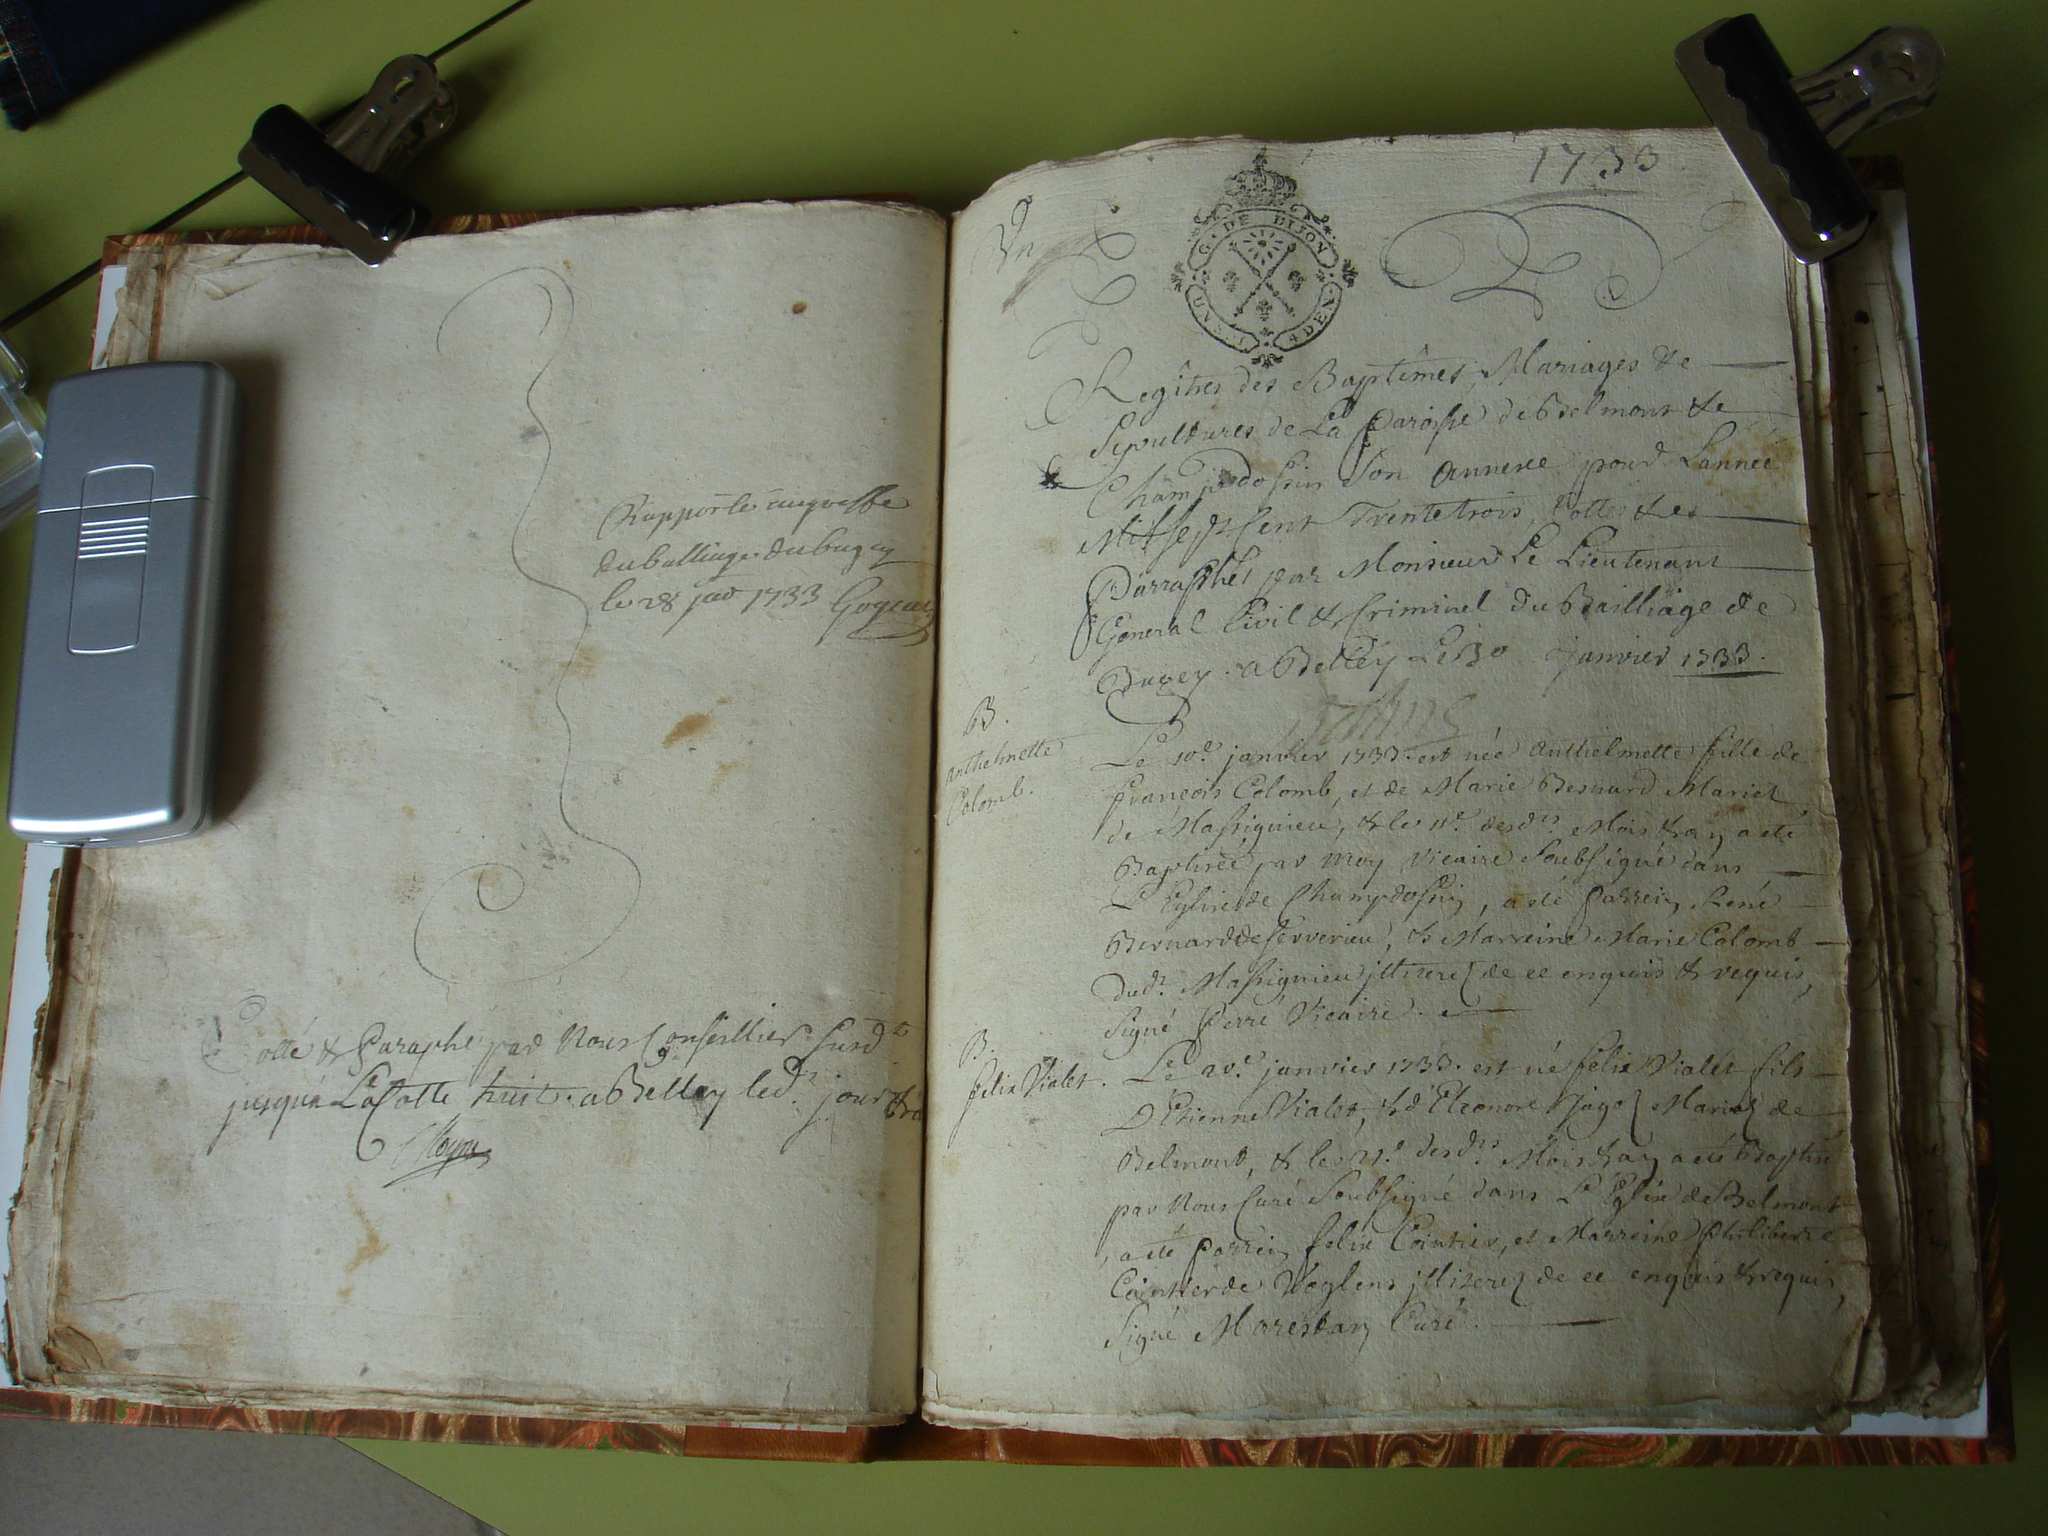 Rapporté au greffe
du balliage du bugey
le 28 1733
Cotté & Paraphé par Nous Conseillier Susdt
jusqu'a La Cotte huit. a Belley led. jour &
1733
Un
G. DE DIJON
Regitres des Baptêmes, Mariages &e
Sepultures de La Paroisse de Belmont &e
Champdossin Son annexe pour L'année
Mil sept Cent Trente trois, Cottes & et
Parraphés par Monsieur Le Lieutenant
General Civil & Criminel du Bailliage de
Bugey. a Belley Le 30 Janvier 1733.
B.
Anthelmette
Colomb.
Le 10e. janvier 1733. est née Anthelmette fille de
François Colomb, et de Marie Bernard Mariez
de Massignieu, & le 11e. desdts. Mois & an a eté
Baptisée par moy vicaire Soubsigné dans
L'Eglise de Champdossin, a eté Parrein René
Bernard de Serverieu, & Marreine Marie Colomb
dudt. Massignieu jllitterez de ce enquis & requis,
Signé Perré Vicaire.
B.
felix Vialet.
Le 20e. janvier 1733. est né felix Vialet fils
D'Etienne Vialet, & d'Eleonore Jago Mariez de
Belmont, & le 21e. desdts. Mois & an a eté Baptisé
par Nous Curé Soubsigné dans L'Eglise de Belmont
, a eté Parrein felix Cointier, et Marreine Philiberte
Cointier de Voglens jllitterez de ce enquis & requis,
Signé Marestan Curé.